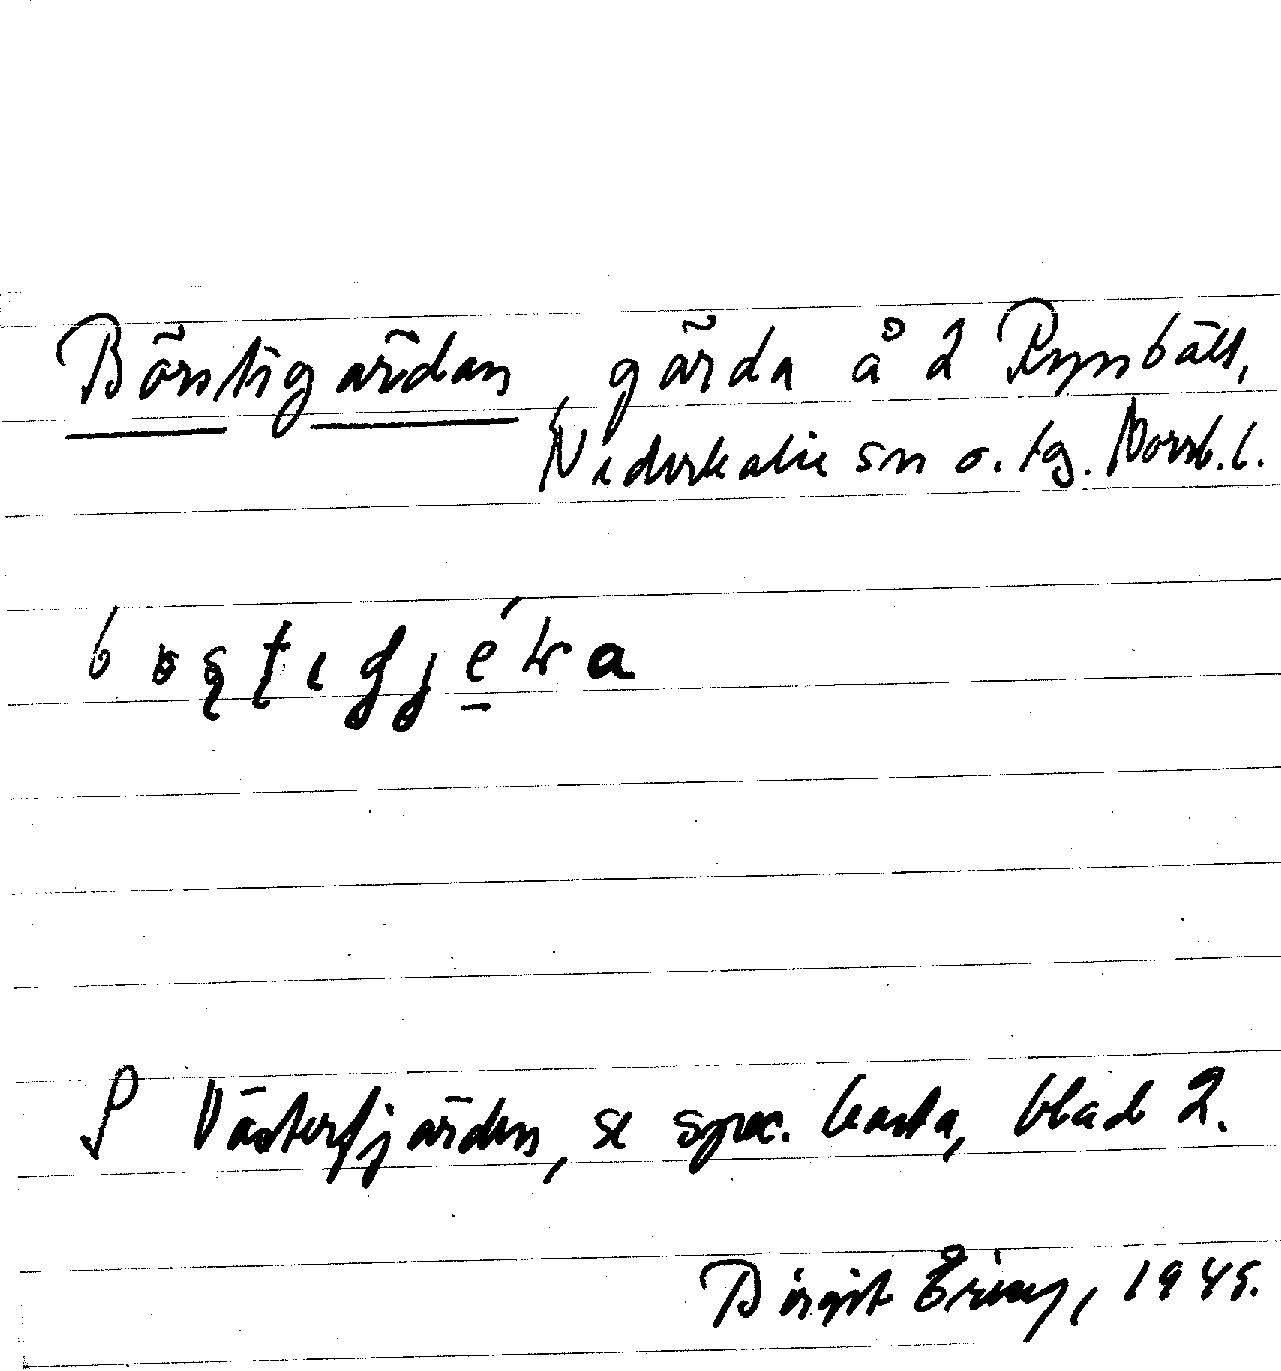 Börstigärdan, gärda å 2 Rynbäck,
Nederkalix sn o. tg. Norrb. l.
S Västerfjärden, se spec. karta, blad 2.
Birgit Eriksson, 1945.